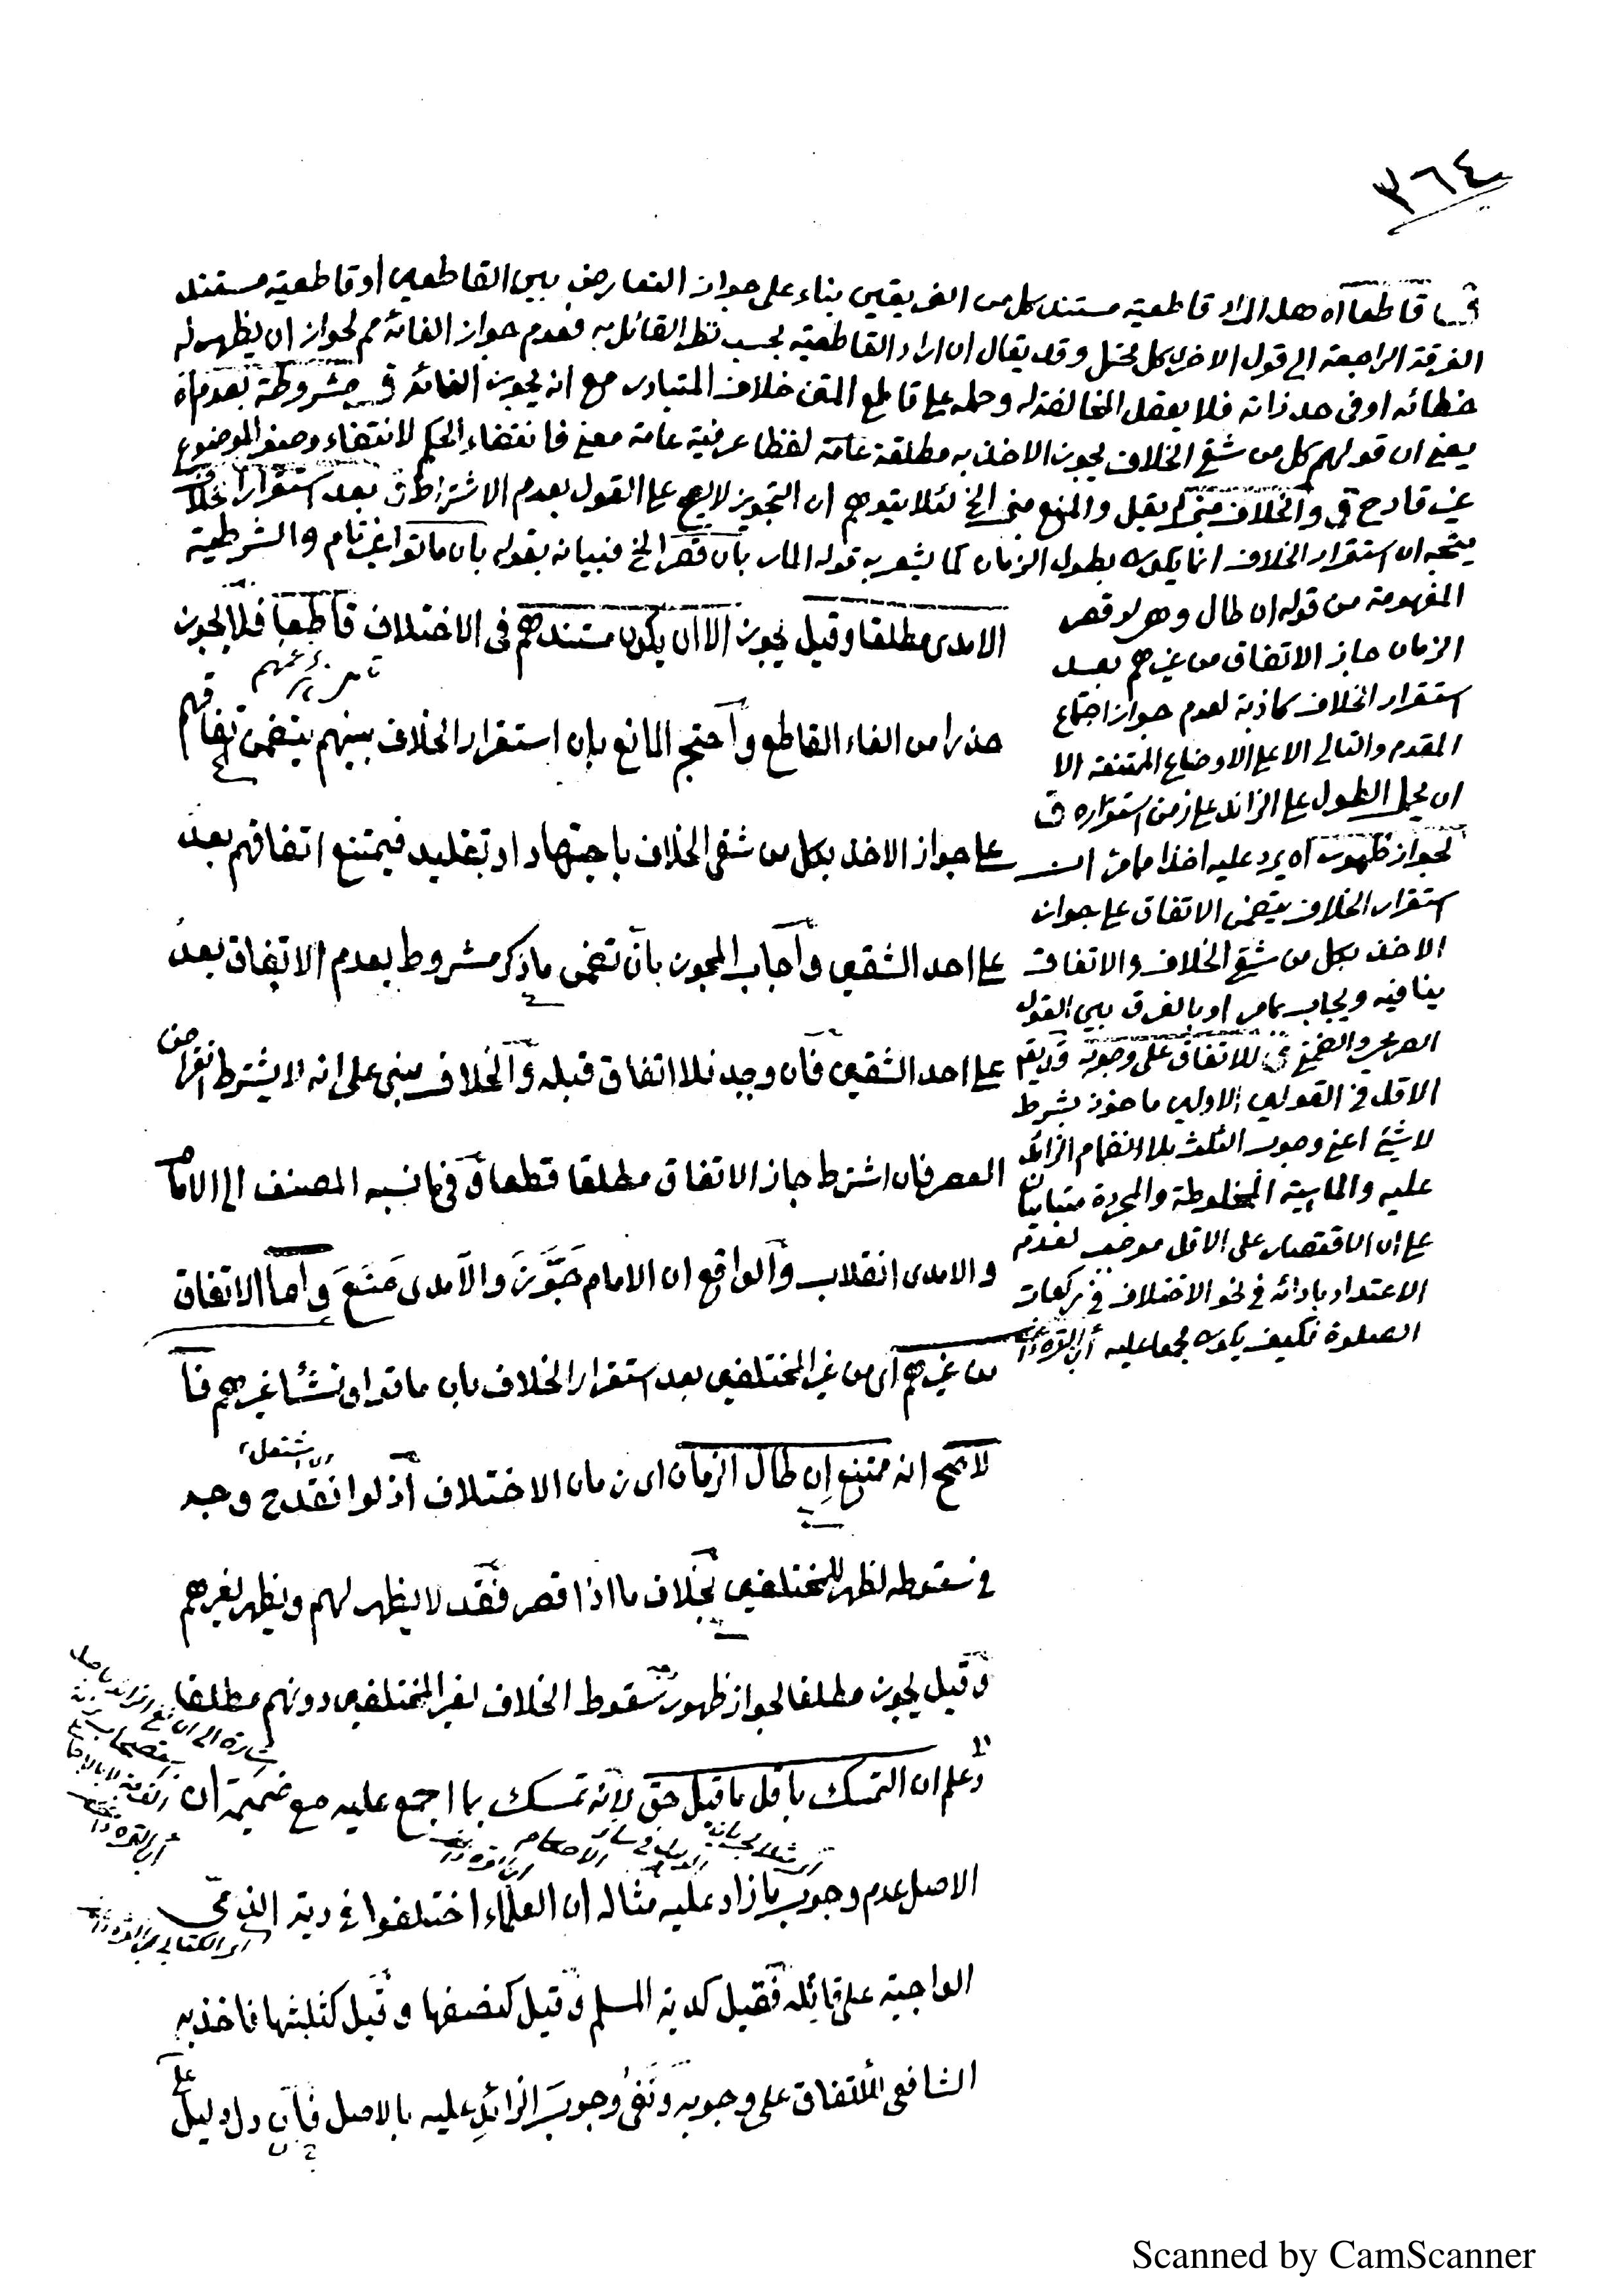 ٣٦٤
قاطعا اه هل المراد قاطعية مستند كل من الفريقين بناء على جواز التعارض بين القاطعين او قاطعية مستند
الفرقة الراجعة الى قول الاخرى كل محتمل وقد يقال ان اراد القاطعية بحسب نظر القائل به فعدم جواز الغائه مم لجواز ان يظهر له
خطائه او فى حد ذاته فلا يعقل المخالفة له وحمله على قاطع المتن خلاف المتبادر مع انه يجوز الغائه ق مشروطة بعدم اه
يعنى ان قولهم كل من شقى الخلاف يجوز الاخذ به مطلقة عامة لفظا عرفية عامة معنى فانتفاء الحكم لانتفاء وصف الموضوع
غير قادح ق والخلاف مبنى لم يقل والمنع مبنى الخ لئلا يتوهم ان التجويز لا يصح على القول بعدم الاشتراط ق بعد استقرار الخلاف
يتجه ان استقرار الخلاف انما يكون بطول الزمان كما يشعر به قوله المار بان قصر الخ فبيانه بقوله بان ماتوا غير تام والشرطية
المفهومة من قوله ان طال وهى لو قصر
الزمان جاز الاتفاق من غيرهم بعد
استقرار الخلاف كاذبة لعدم جواز اجتماع
المقدم والتالى الا على الاوضاع الممتنعة الا
ان يحمل الطول على الزائد على زمن استقراره ق
لجواز ظهور اه يرد عليه اخذا مما مر ان
استقرار الخلاف يتضمن الاتفاق على جواز
الاخذ بكل من شقى الخلاف والاتفاق
ينافيه ويجاب بما مر او بالفرق بين القول
الصريح والضمنى ق للاتفاق على وجوبه قد يقم
الاقل فى القولين الاولين ماخوذ بشرط
لا شئ اعنى وجوب الثلث بلا انضمام الزائد
عليه والماهية المخلوطة والمجردة متباينان
على ان الاقتصار على الاقل موجب لعدم
الاعتداد بادائه فى نحو الاختلاف فى ركعات
الصلوة فكيف يكون مجمعا عليه ابن القره داغى
الامدى مطلقا وقيل يجوز الا ان يكون مستندهم فى الاختلاف قاطعا فلا يجوز
حذرا من الغاء القاطع واحتج المانع بان استقرار الخلاف بينهم يتضمن اتفاقهم
على جواز الاخذ بكل من شقى الخلاف باجتهاد او تقليد فيمتنع اتفاقهم بعد
على احد الشقين واجاب المجوز بان تضمن ما ذكر مشروط بعدم الاتفاق بعد
على احد الشقين فان وجد فلا اتفاق قبله والخلاف مبنى على انه لا يشترط انقراض
العصر فان اشترط جاز الاتفاق مطلقا قطعا وفيما نسبه المصنف الى الامام
والامدى انقلاب والواقع ان الامام جَوَّزَ والآمدى مَنَعَ واما الاتفاق
من غيرهم اى من غير المختلفين بعد استقرار الخلاف بان ماتوا ونشأ غيرهم فا
لاصح انه ممتنع ان طال الزمان اى زمان الاختلاف اذ لو انقدح وجه
فى سقوطه لظهر للمختلفين بخلاف ما اذا قصر فقد لا يظهر لهم ويظهر لغيرهم
وقيل يجوز مطلقا لجواز ظهور سقوط الخلاف لغير المختلفين دونهم مطلقا
واعلم ان التمسك باقل ما قيل حق لانه تمسك بما اجمع عليه مع ضميمة ان
الاصل عدم وجوب ما زاد عليه مثاله ان العلماء اختلفوا فى دية الذمى
اى الكتابى ابن القره داغى
الواجبة على قاتله فقيل كدية المسلم وقيل كنصفها وقيل كثلثها فاخذ به
الشافعى للاتفاق على وجوبه ونفى وجوب الزائد عليه بالاصل فان دل دليل على
Scanned by CamScanner